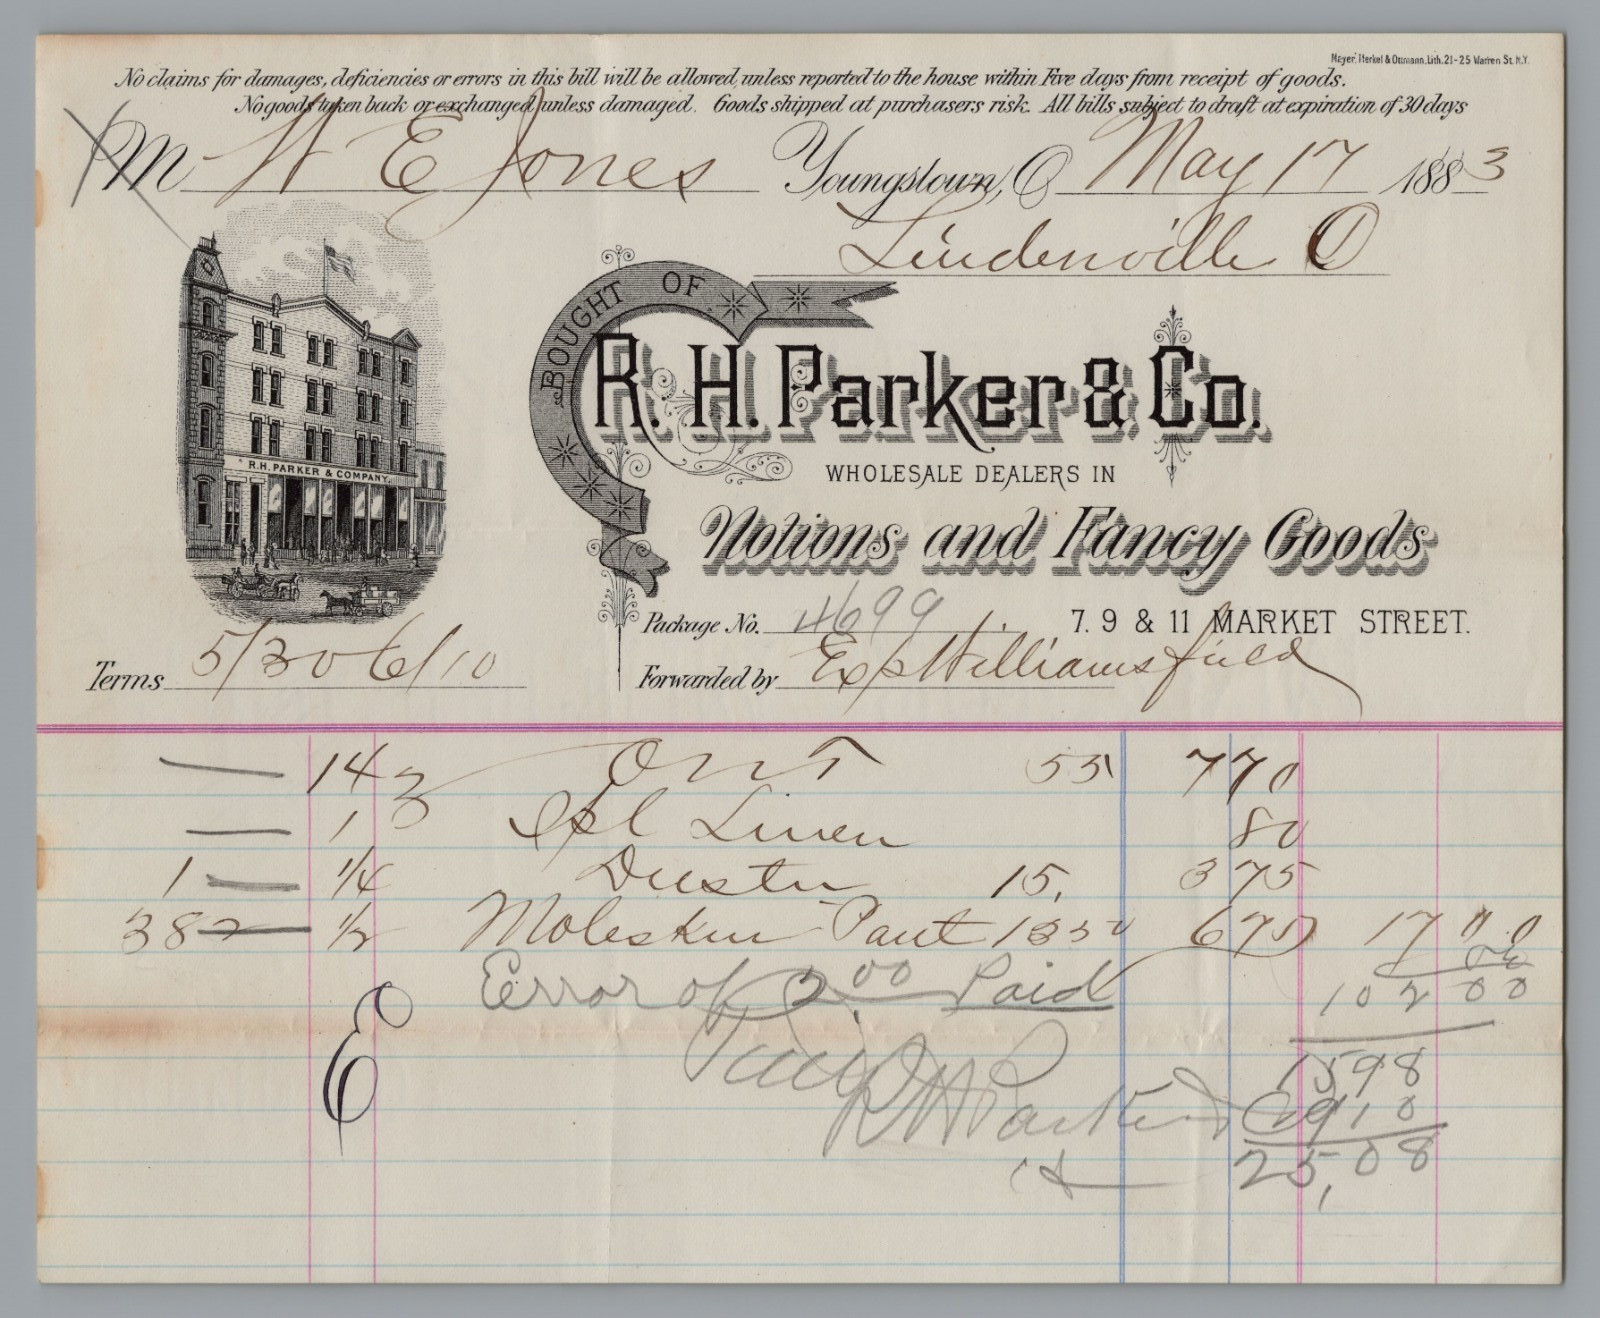 Mayer, Merkel & Ottmann, Lith. 21-25 Warren St. N.Y.
No claims for damages, deficiencies or errors in this bill will be allowed, unless reported to the house within Five days from receipt of goods.
No goods taken back or exchanged, unless damaged. Goods shipped at purchasers risk. All bills subject to draft at expiration of 30 days
M W E Jones Youngstown, O May 17 1883
Lindenville O
BOUGHT OF
R. H. Parker & Co.
R.H. PARKER & COMPANY.
WHOLESALE DEALERS IN
Notions and Fancy Goods
Package No. 4699 7. 9 & 11 MARKET STREET.
Terms 5/30 6/10 Forwarded by Exp Williamsfield
— 14 3 ONT 55 7 70
— 1 Spl Linen 80
1 — 1/4 Duster 15. 3 75
382 — 1/2 Moleskin Pant 1350 6 75 17 00
Error of 2.00 Paid
1 02 00
15 98
R H Parker 9 10
25,08